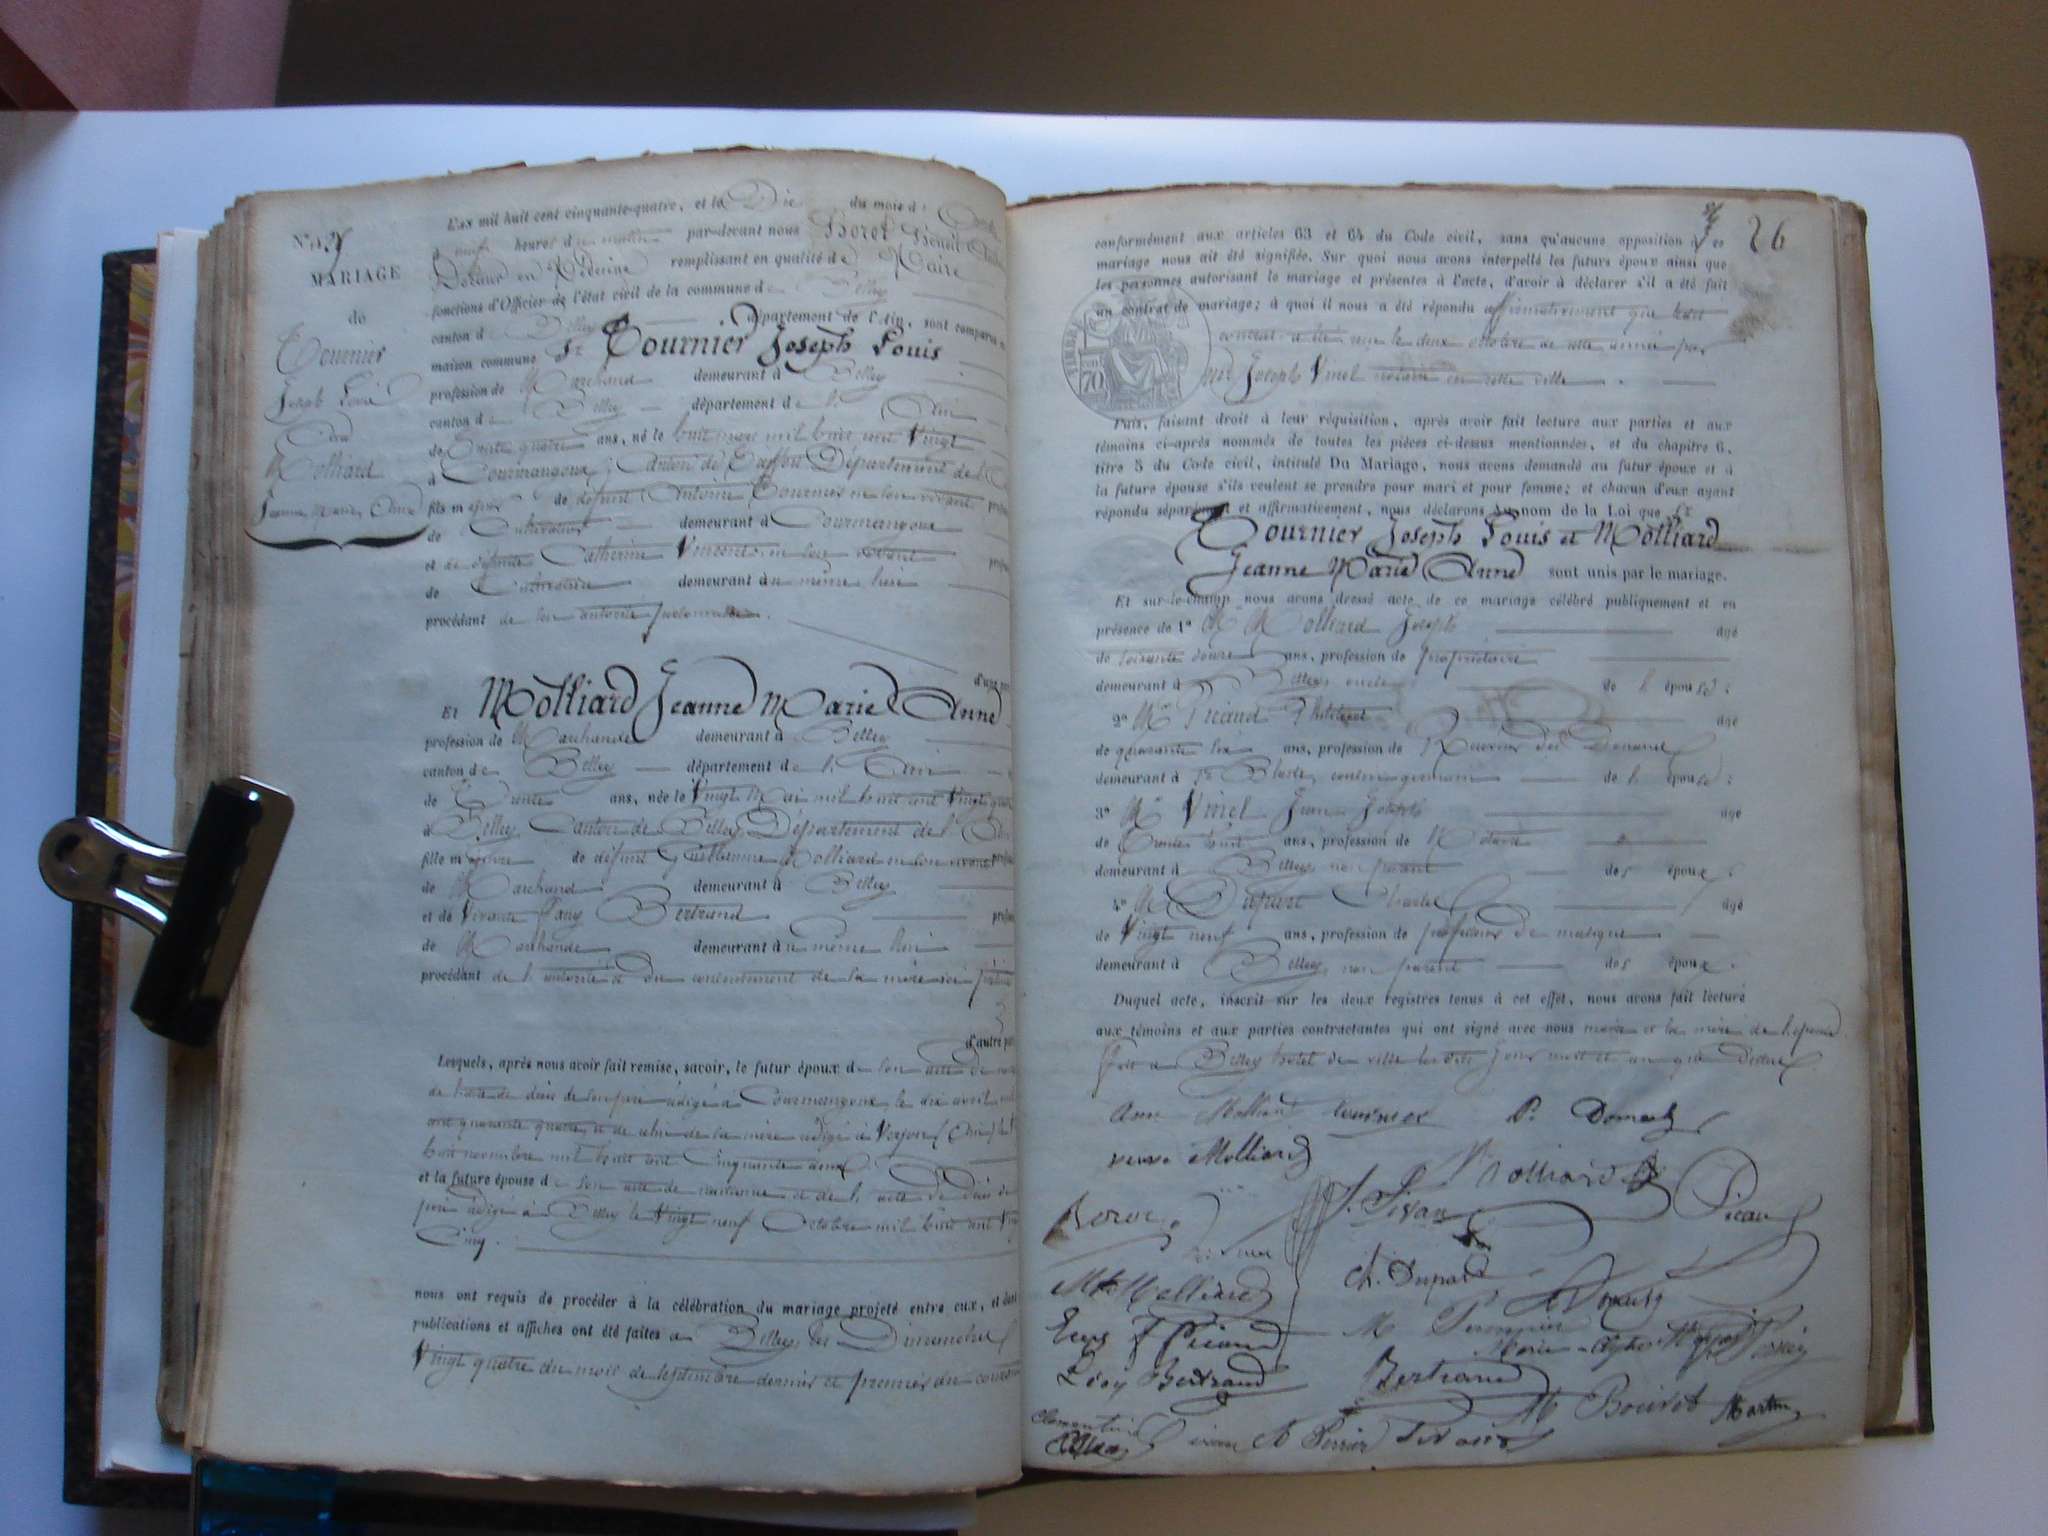 MARIAGE
de
Tournier
Joseph Louis
Molliard
Jeanne Marie Anne
L'an mil huit cent cinquante-quatre, et le Dix du mois d'
heures du matin par-devant nous
Docteur en Médecine remplissant en qualité de Maire
fonctions d'Officier de l'état civil de la commune de Belley
canton de Belley département de l'Ain, sont comparus
maison commune Sr Tournier Joseph Louis
profession de Marchand demeurant à Belley
canton de Belley département de l'Ain
de trente quatre ans, né le huit mars mil huit cent Vingt
à Courmangoux, Canton de Département de l'
fils majeur de défunt Antoine Tournier en son vivant
de Cultivateur demeurant à Courmangoux
et de défunte Catherine Vincent en son vivant
de Cultivatrice demeurant au même lieu
procédant de son autorité personnelle.
d'une part
Et Molliard Jeanne Marie Anne
profession de Marchande demeurant à Belley
canton de Belley département de l'Ain
de Trente ans, née le Vingt Mai mil huit cent Vingt quatre
à Belley Canton de Belley Département de l'Ain
fille majeure de défunt Guillaume Molliard en son vivant
de Marchand demeurant à Belley
et de Vivante Fany Bertrand
de Marchande demeurant au même lieu
procédant de l'autorité et du consentement de sa mère ici présente
d'autre part
Lesquels, après nous avoir fait remise, savoir, le futur époux de son acte de
de l'acte de décès de son père rédigé à Courmangoux le dix avril mil
cent quarante quatre et de celui de sa mère rédigé à Verjon (Ain) le
huit novembre mil huit cent Cinquante deux
et la future épouse de son acte de naissance et de l'acte de décès de
père rédigé à Belley le Vingt neuf Octobre mil huit cent
Cinq.
nous ont requis de procéder à la célébration du mariage projeté entre eux, et dont
publications et affiches ont été faites à Belley les Dimanches
Vingt quatre du mois de septembre dernier et premier du courant
26
conformément aux articles 63 et 64 du Code civil, sans qu'aucune opposition à ce
mariage nous ait été signifiée. Sur quoi nous avons interpellé les futurs époux ainsi que
les personnes autorisant le mariage et présentes à l'acte, d'avoir à déclarer s'il a été fait
un contrat de mariage; à quoi il nous a été répondu affirmativement que
contrat a été reçu le deux octobre de cette année par
Joseph Vinel notaire en cette ville
TIMBRE
70
Puis, faisant droit à leur réquisition, après avoir fait lecture aux parties et aux
témoins ci-après nommés de toutes les pièces ci-dessus mentionnées, et du chapitre 6,
titre 5 du Code civil, intitulé Du Mariage, nous avons demandé au futur époux et à
la future épouse s'ils veulent se prendre pour mari et pour femme; et chacun d'eux ayant
répondu séparément et affirmativement, nous déclarons au nom de la Loi que Sr
Tournier Joseph Louis et Molliard
Jeanne Marie Anne sont unis par le mariage.
Et sur-le-champ nous avons dressé acte de ce mariage célébré publiquement et en
présence de 1° Mr Molliard Joseph âgé
de soixante douze ans, profession de propriétaire
demeurant à Belley oncle de l'épouse;
2° Mr Picaud âgé
de quarante six ans, profession de Receveur des Domaines
demeurant à cousin germain de l'épouse;
3° Mr Vinel Jean Joseph âgé
de Trente huit ans, profession de Notaire
demeurant à Belley non parent des époux;
4° Mr Dupart Charles âgé
de Vingt neuf ans, profession de professeur de musique
demeurant à Belley non parent des époux.
Duquel acte, inscrit sur les deux registres tenus à cet effet, nous avons fait lecture
aux témoins et aux parties contractantes qui ont signé avec nous maire et la mère de l'épouse.
Fait à Belley hotel de ville les dits jour mois et an que dessus
Molliard tournier
veuve Molliard
Molliard
Picaud
ch. Dupart
Molliard
Picaud
Bertrand
Bertrand
Martin
Perrier